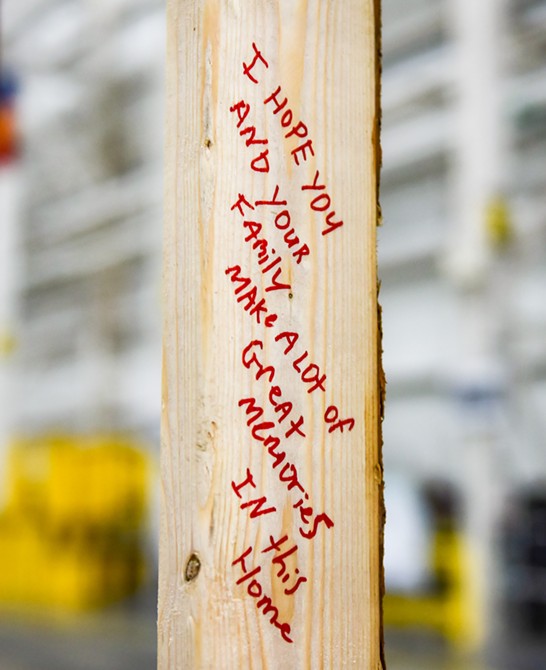 I HOPE YOU
AND YOUR
FAMiLY
MAKe A LOt oF
GreAt
MeMOries
IN this
Home